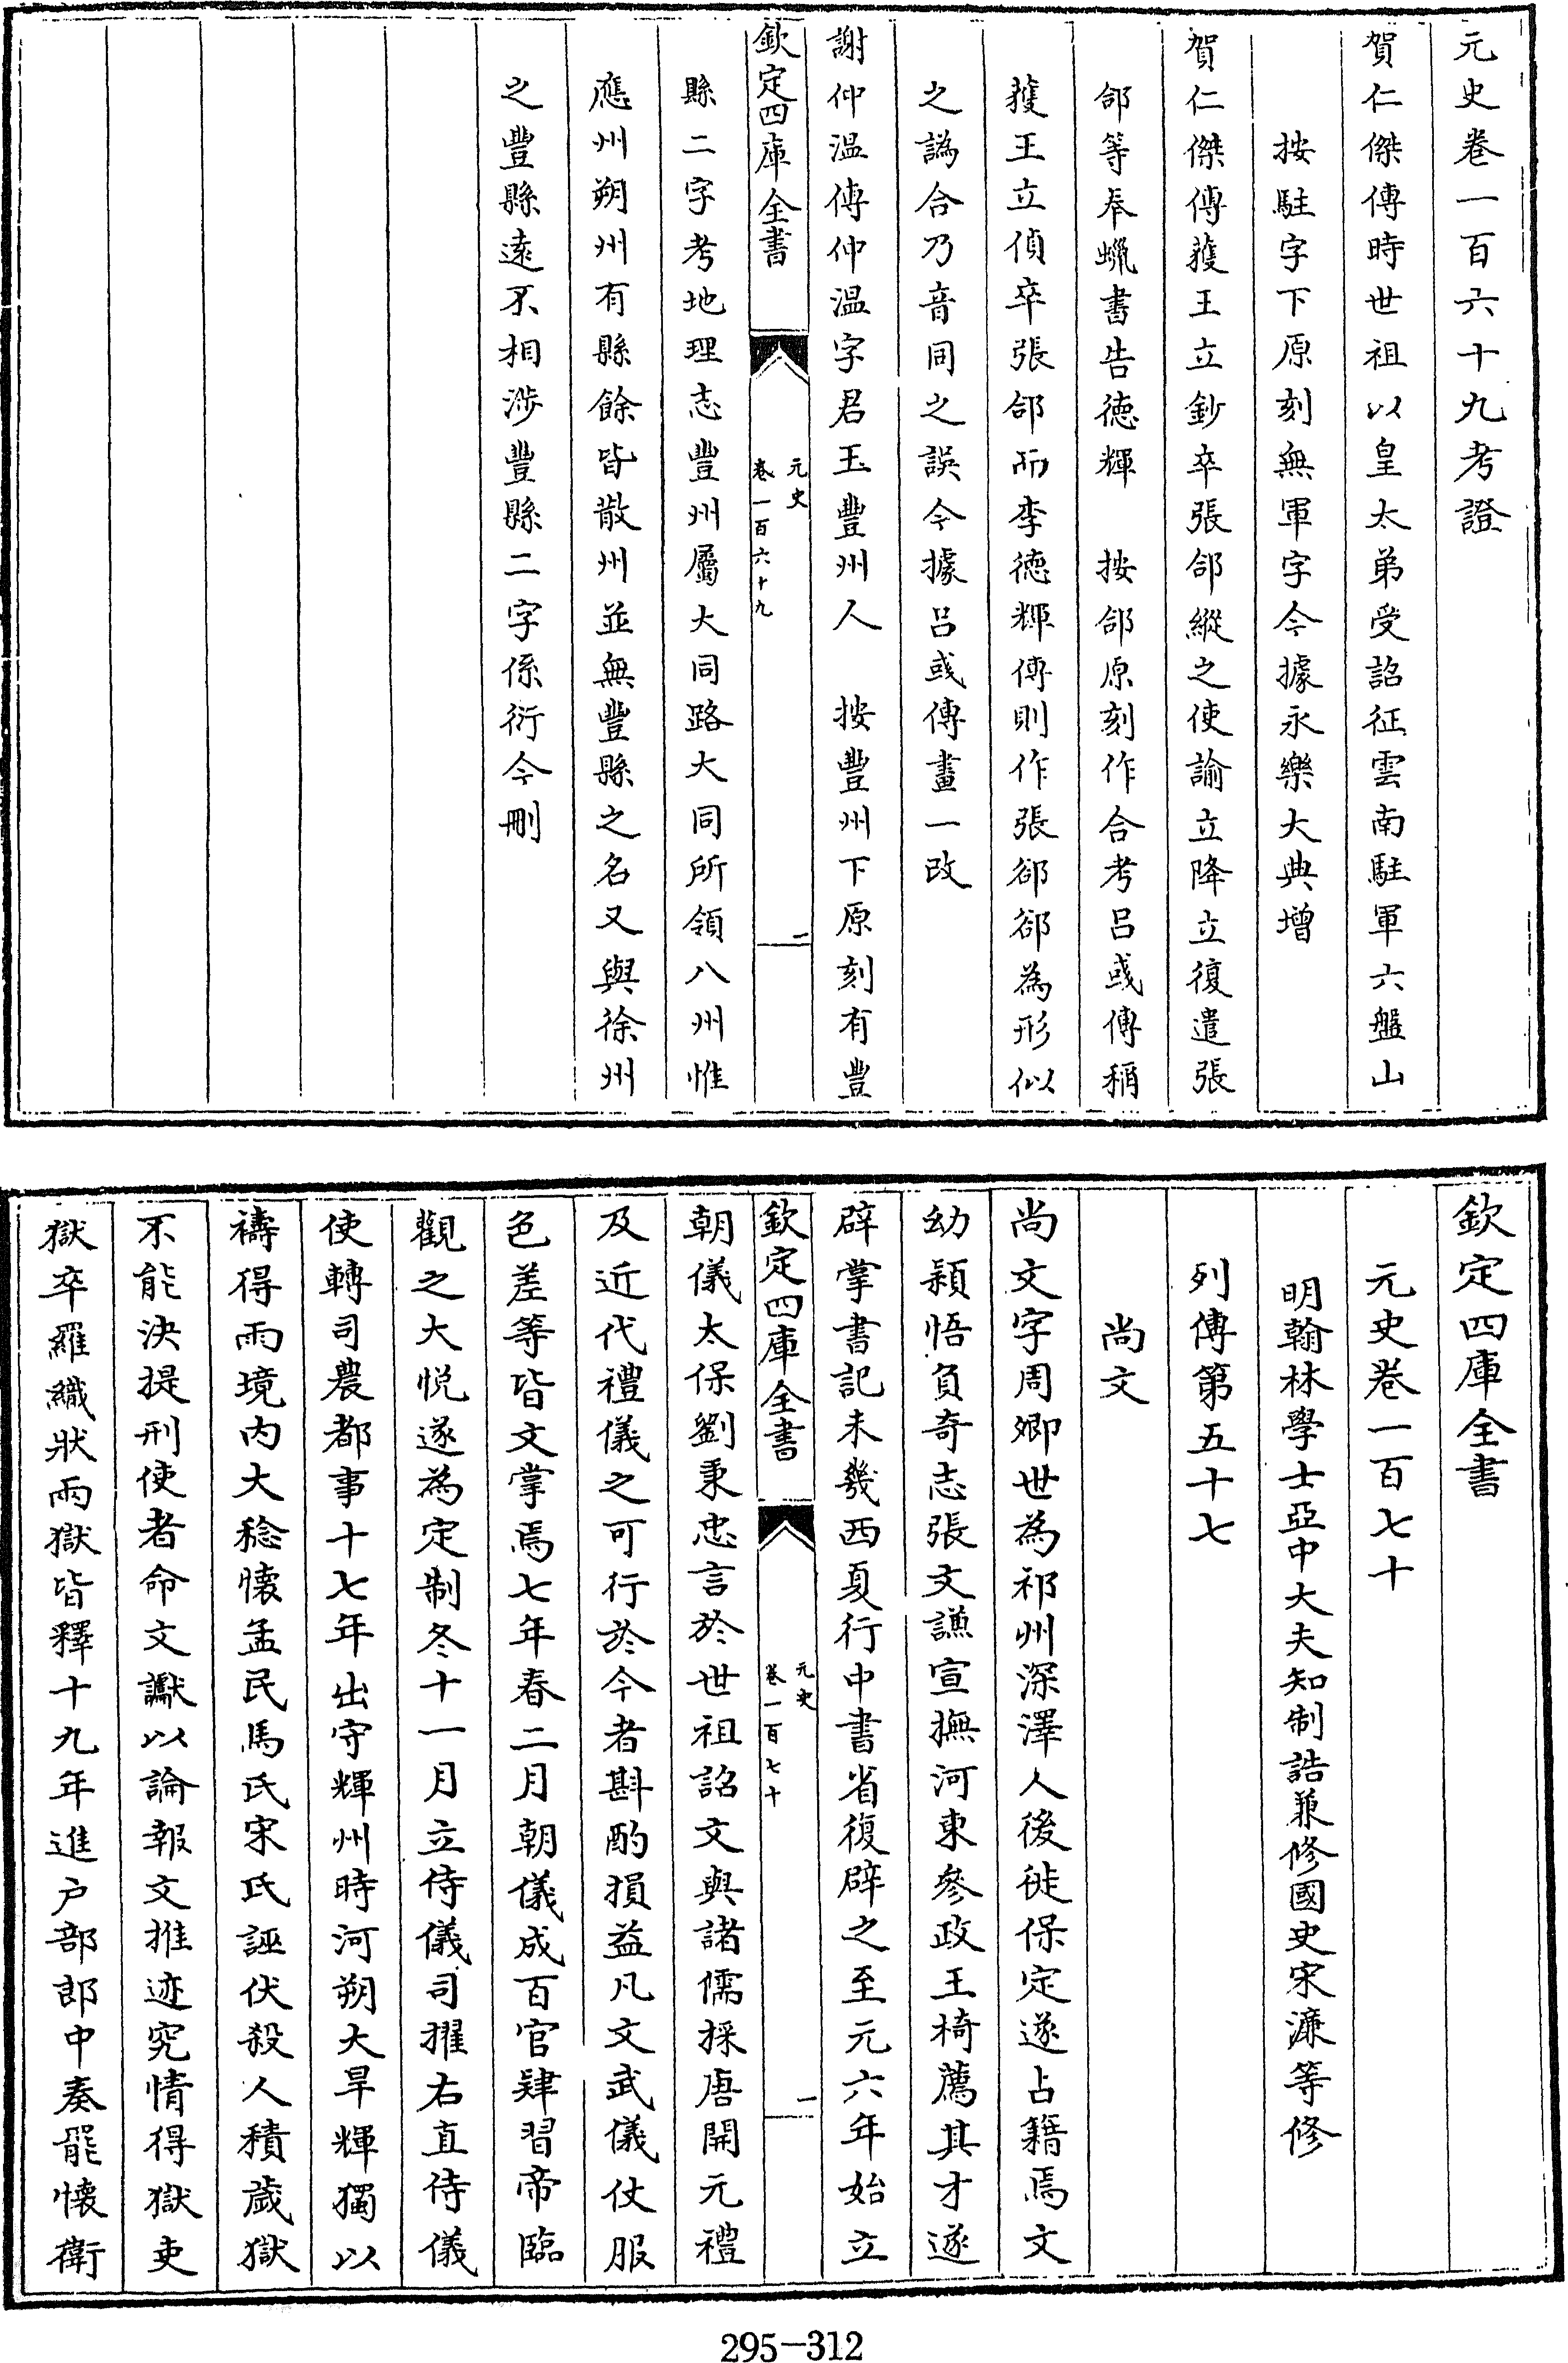 元史卷一百六十九考證
賀仁傑傳時世祖以皇太弟受詔征雲南駐軍六盤山
按駐字下原刻無軍字今據永樂大典增
賀仁傑傳獲王立鈔卒張郃縱之使諭立降立復遣張
郃等奉蠟書告德輝　按郃原刻作合考呂或傳稱
獲王立偵卒張郃而李德輝傳則作張郤郤為形似
之譌合乃音同之誤今據呂或傳畫一改
謝仲溫傳仲溫字君玉豐州人　按豐州下原刻有豐
欽定四庫全書
元史
卷一百六十九
二
縣二字考地理志豐州屬大同路大同所領八州惟
應州朔州有縣餘皆散州並無豐縣之名又與徐州
之豐縣遠不相涉豐縣二字係衍今刪
欽定四庫全書
元史卷一百七十
明翰林學士亞中大夫知制誥兼修國史宋濂等修
列傳第五十七
尚文
尚文字周卿世為祁州深澤人後徙保定遂占籍焉文
幼穎悟負奇志張文謙宣撫河東參政王椅薦其才遂
辟掌書記未幾西夏行中書省復辟之至元六年始立
欽定四庫全書
元史
卷一百七十
一
朝儀太保劉秉忠言於世祖詔文與諸儒採唐開元禮
及近代禮儀之可行於今者斟酌損益凡文武儀仗服
色差等皆文掌焉七年春二月朝儀成百官肄習帝臨
觀之大悅遂為定制冬十一月立侍儀司擢右直侍儀
使轉司農都事十七年出守輝州時河朔大旱輝獨以
禱得雨境內大稔懷孟民馬氏宋氏誣伏殺人積歲獄
不能決提刑使者命文讞以論報文推迹究情得獄吏
獄卒羅織狀兩獄皆釋十九年進户部郎中奏罷懷衛
295-312